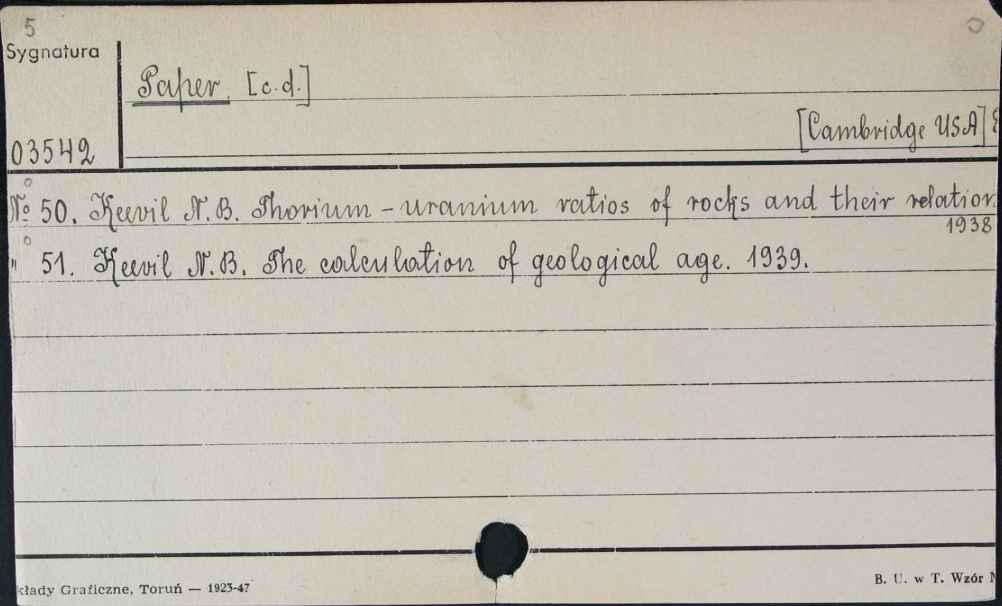 5
Sygnatura
Paper. [c.d.]
[Cambridge USA]
03542
№ 50. Keevil N.B. Thorium - uranium ratios of rocks and their relation
1938
" 51. Keevil N.B. The calculation of geological age. 1939.
kłady Graficzne, Toruń — 1923-47
B. U. w T. Wzór